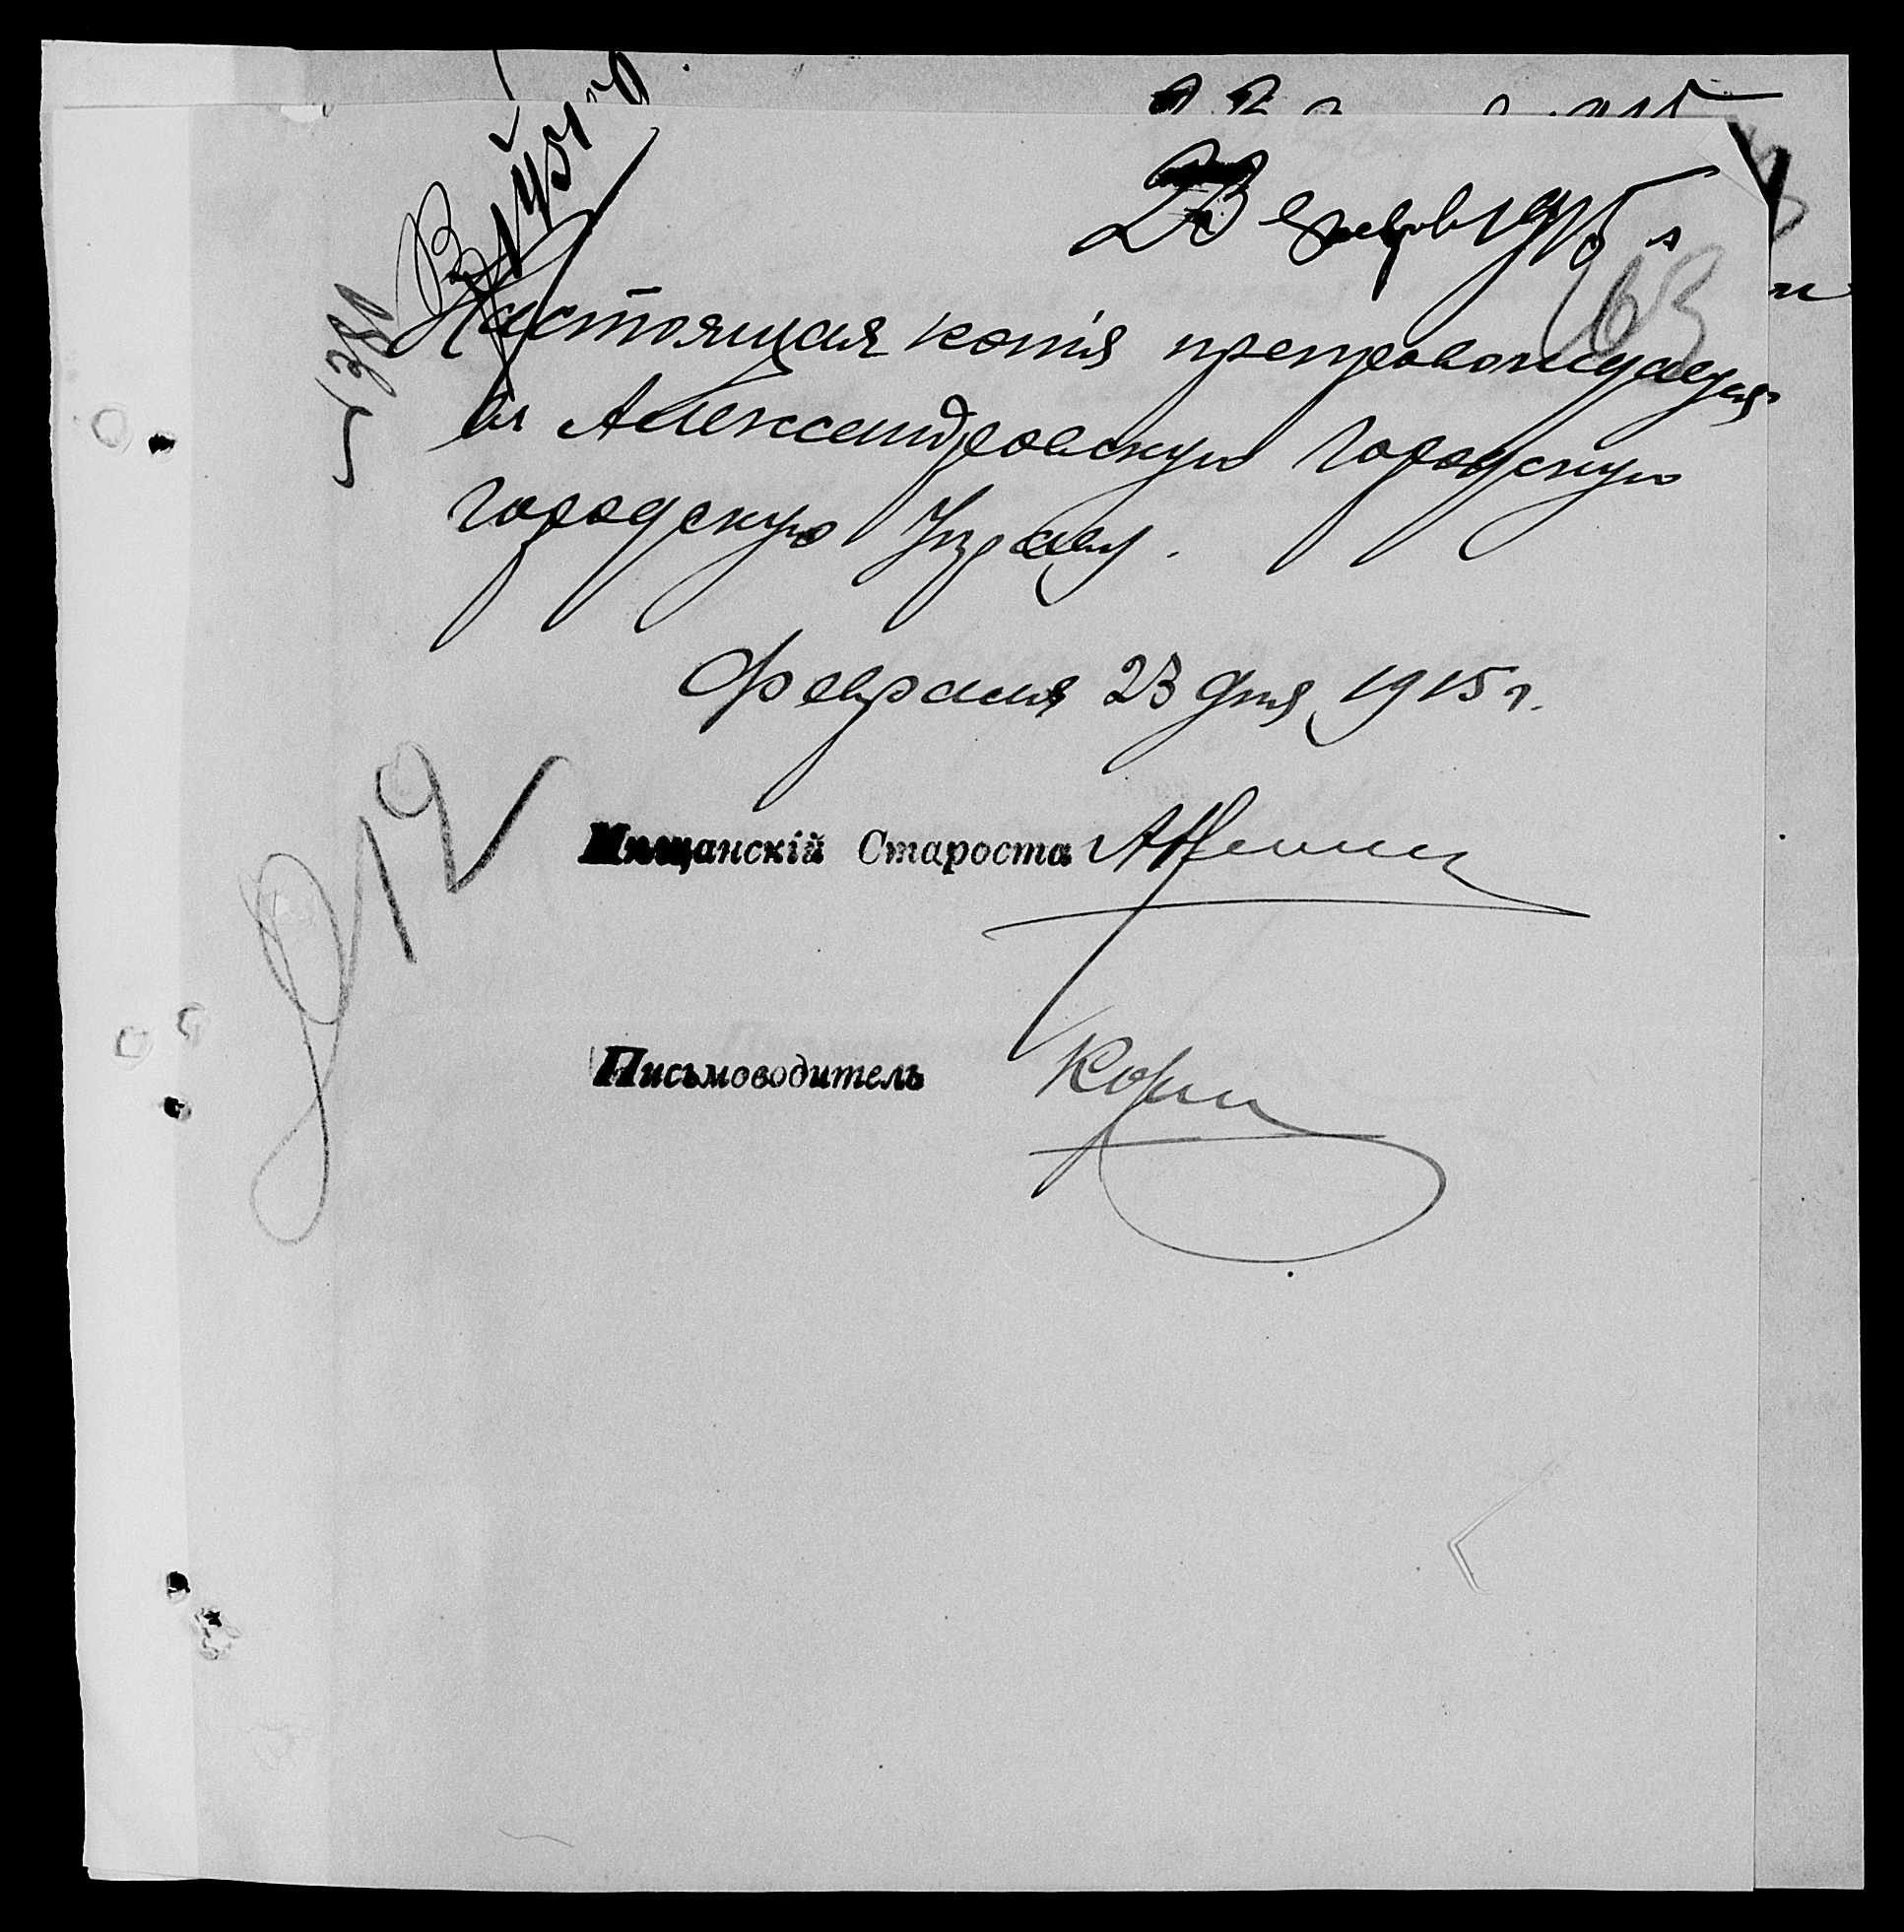 23 февр 1915 г
63
Настоящая копія препровождается
въ Александровскую Городскую
городскую Управу.
Февраля 23 дня 1915 г.
912
Мѣщанскій Староста
Письмоводитель